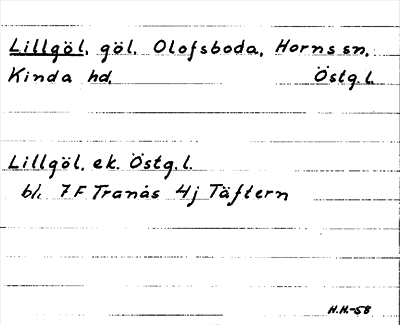 Lillgöl, göl, Olofsboda, Horns sn,
Kinda hd, Östg.l.
Lillgöl, ek. Östg.l.
bl. 7F Tranås 4j Täftern
H.H.-58